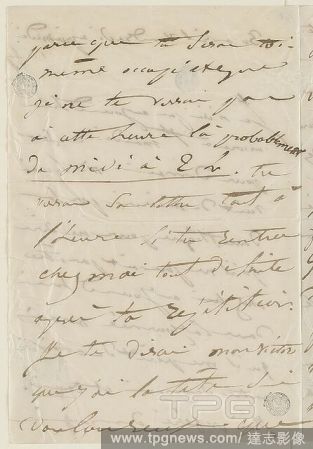 parce que tu seras toi-
même occupé et que
je ne te verrai pas
à cette heure là probablement
De midi à 2 h. tu
verras tout à
l'heure si tu rentres
chez moi tout de suite
après ta répétition.
Je te dirai mon Victor
que j'ai la tête si
douloureuse que
TPG
www.tpgnews.com / 達志影像